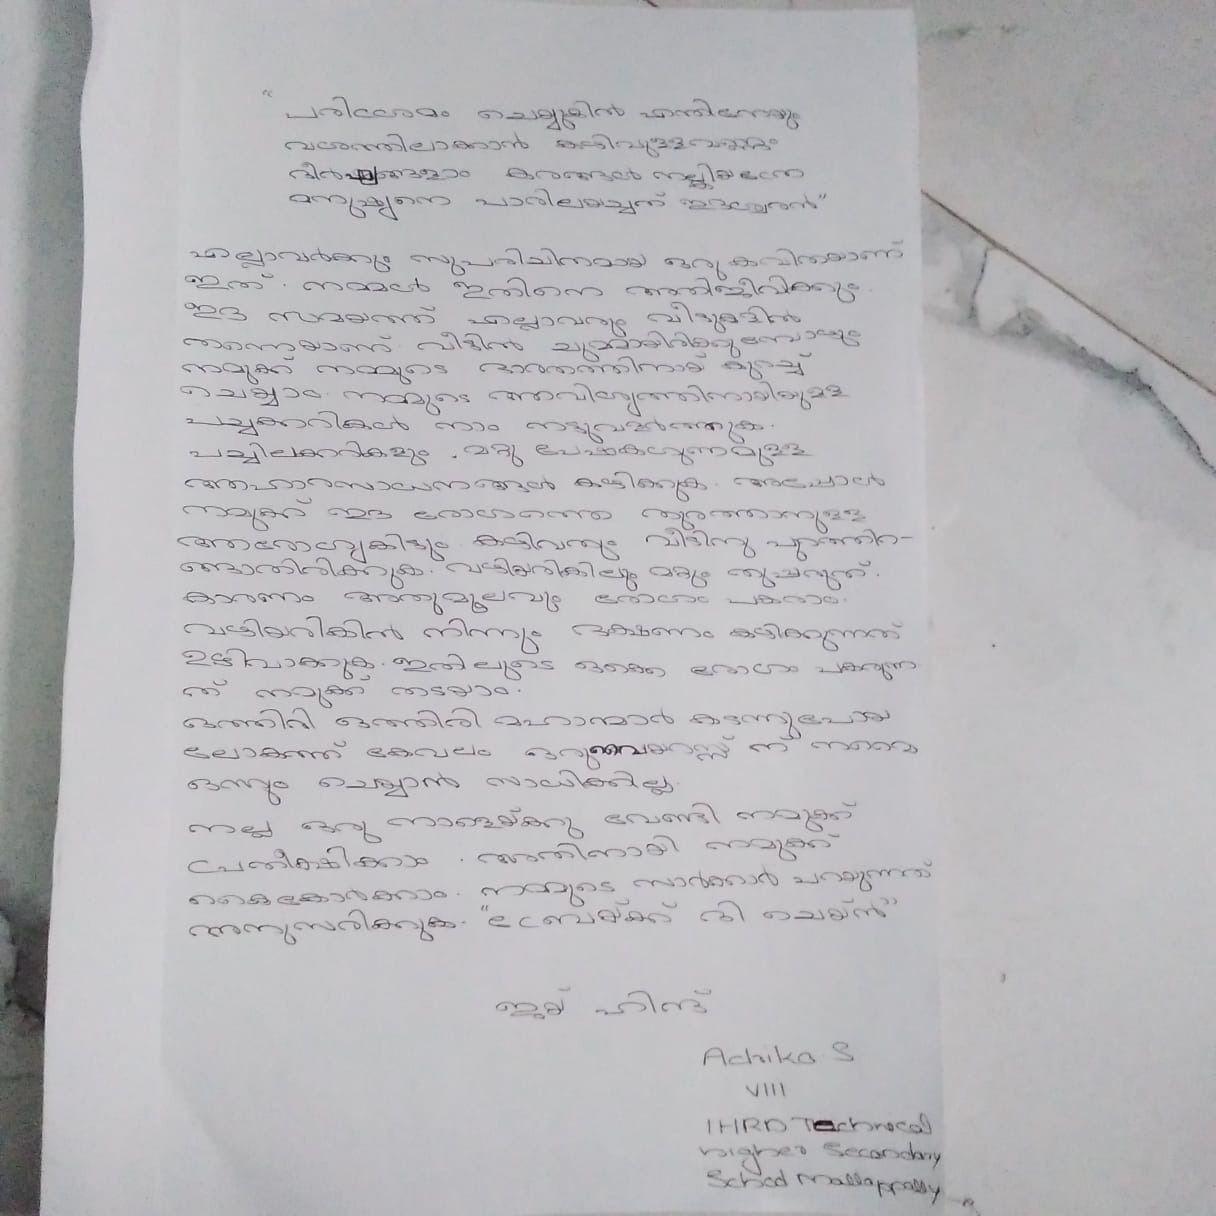 “പരിശ്രമം ചെയ്യുകിൽ എന്തിനേയും
വശത്തിലാക്കാൻ കഴിവുള്ളവണ്ണം
ദീർഘങ്ങളാം കരങ്ങൾ നല്കിയത്രേ
മനുഷ്യനെ പാരിലയച്ചത് ഈശ്വരൻ”
എല്ലാവർക്കും സുപരിചിതമായ ഒരു കവിതയാണ്
ഇത്. നമ്മൾ ഇതിനെ അതിജീവിക്കും.
ഈ സമയത്ത് എല്ലാവരും വീടുകളിൽ
തന്നെയാണ് വീട്ടിൽ ചുമ്മായിരിക്കുമ്പോളും
നമുക്ക് നമ്മുടെ ഭാരതത്തിനായ് കുറച്ച്
ചെയ്യാം. നമ്മുടെ ആവിശ്യത്തിനായിയുള്ള
പച്ചക്കറികൾ നാം നട്ടുവളർത്തുക.
പച്ചിലക്കറികളും, മറ്റു പോഷകഗുണമുള്ള
ആഹാരസാധനങ്ങൾ കഴിക്കുക. അപ്പോൾ
നമുക്ക് ഈ രോഗത്തെ തുരത്താനുള്ള
ആരോഗ്യകിട്ടും. കഴിവതും വീടിനു പുറത്തിറ-
ങ്ങാതിരിക്കുക. വഴിയരികിലും മറ്റും തുപ്പരുത്.
കാരണം അതുമൂലവും രോഗം പകരാം.
വഴിയരികിൽ നിന്നും ഭക്ഷണം കഴിക്കുന്നത്
ഒഴിവാക്കുക. ഇതിലൂടെ ഒക്കെ രോഗം പകരുന്ന
ത് നമുക്ക് തടയാം.
ഒത്തിരി ഒത്തിരി മഹാന്മാർ കടന്നുപോയ
ലോകത്ത് കേവലം ഒരു വൈറസ്സ് ന് നമ്മെ
ഒന്നും ചെയ്യാൻ സാധിക്കില്ല.
നല്ല ഒരു നാളെയ്ക്കു വേണ്ടി നമുക്ക്
പ്രതീക്ഷിക്കാം. അതിനായി നമുക്ക്
കൈകോർക്കാം. നമ്മുടെ സർക്കാർ പറയുന്നത്
അനുസരിക്കുക. “ബ്രേയ്ക്ക് ദി ചെയ്ൻ”
ജയ് ഹിന്ദ്
Achika S
VIII
IHRD Technical
Higher Secondary
School Mallappally